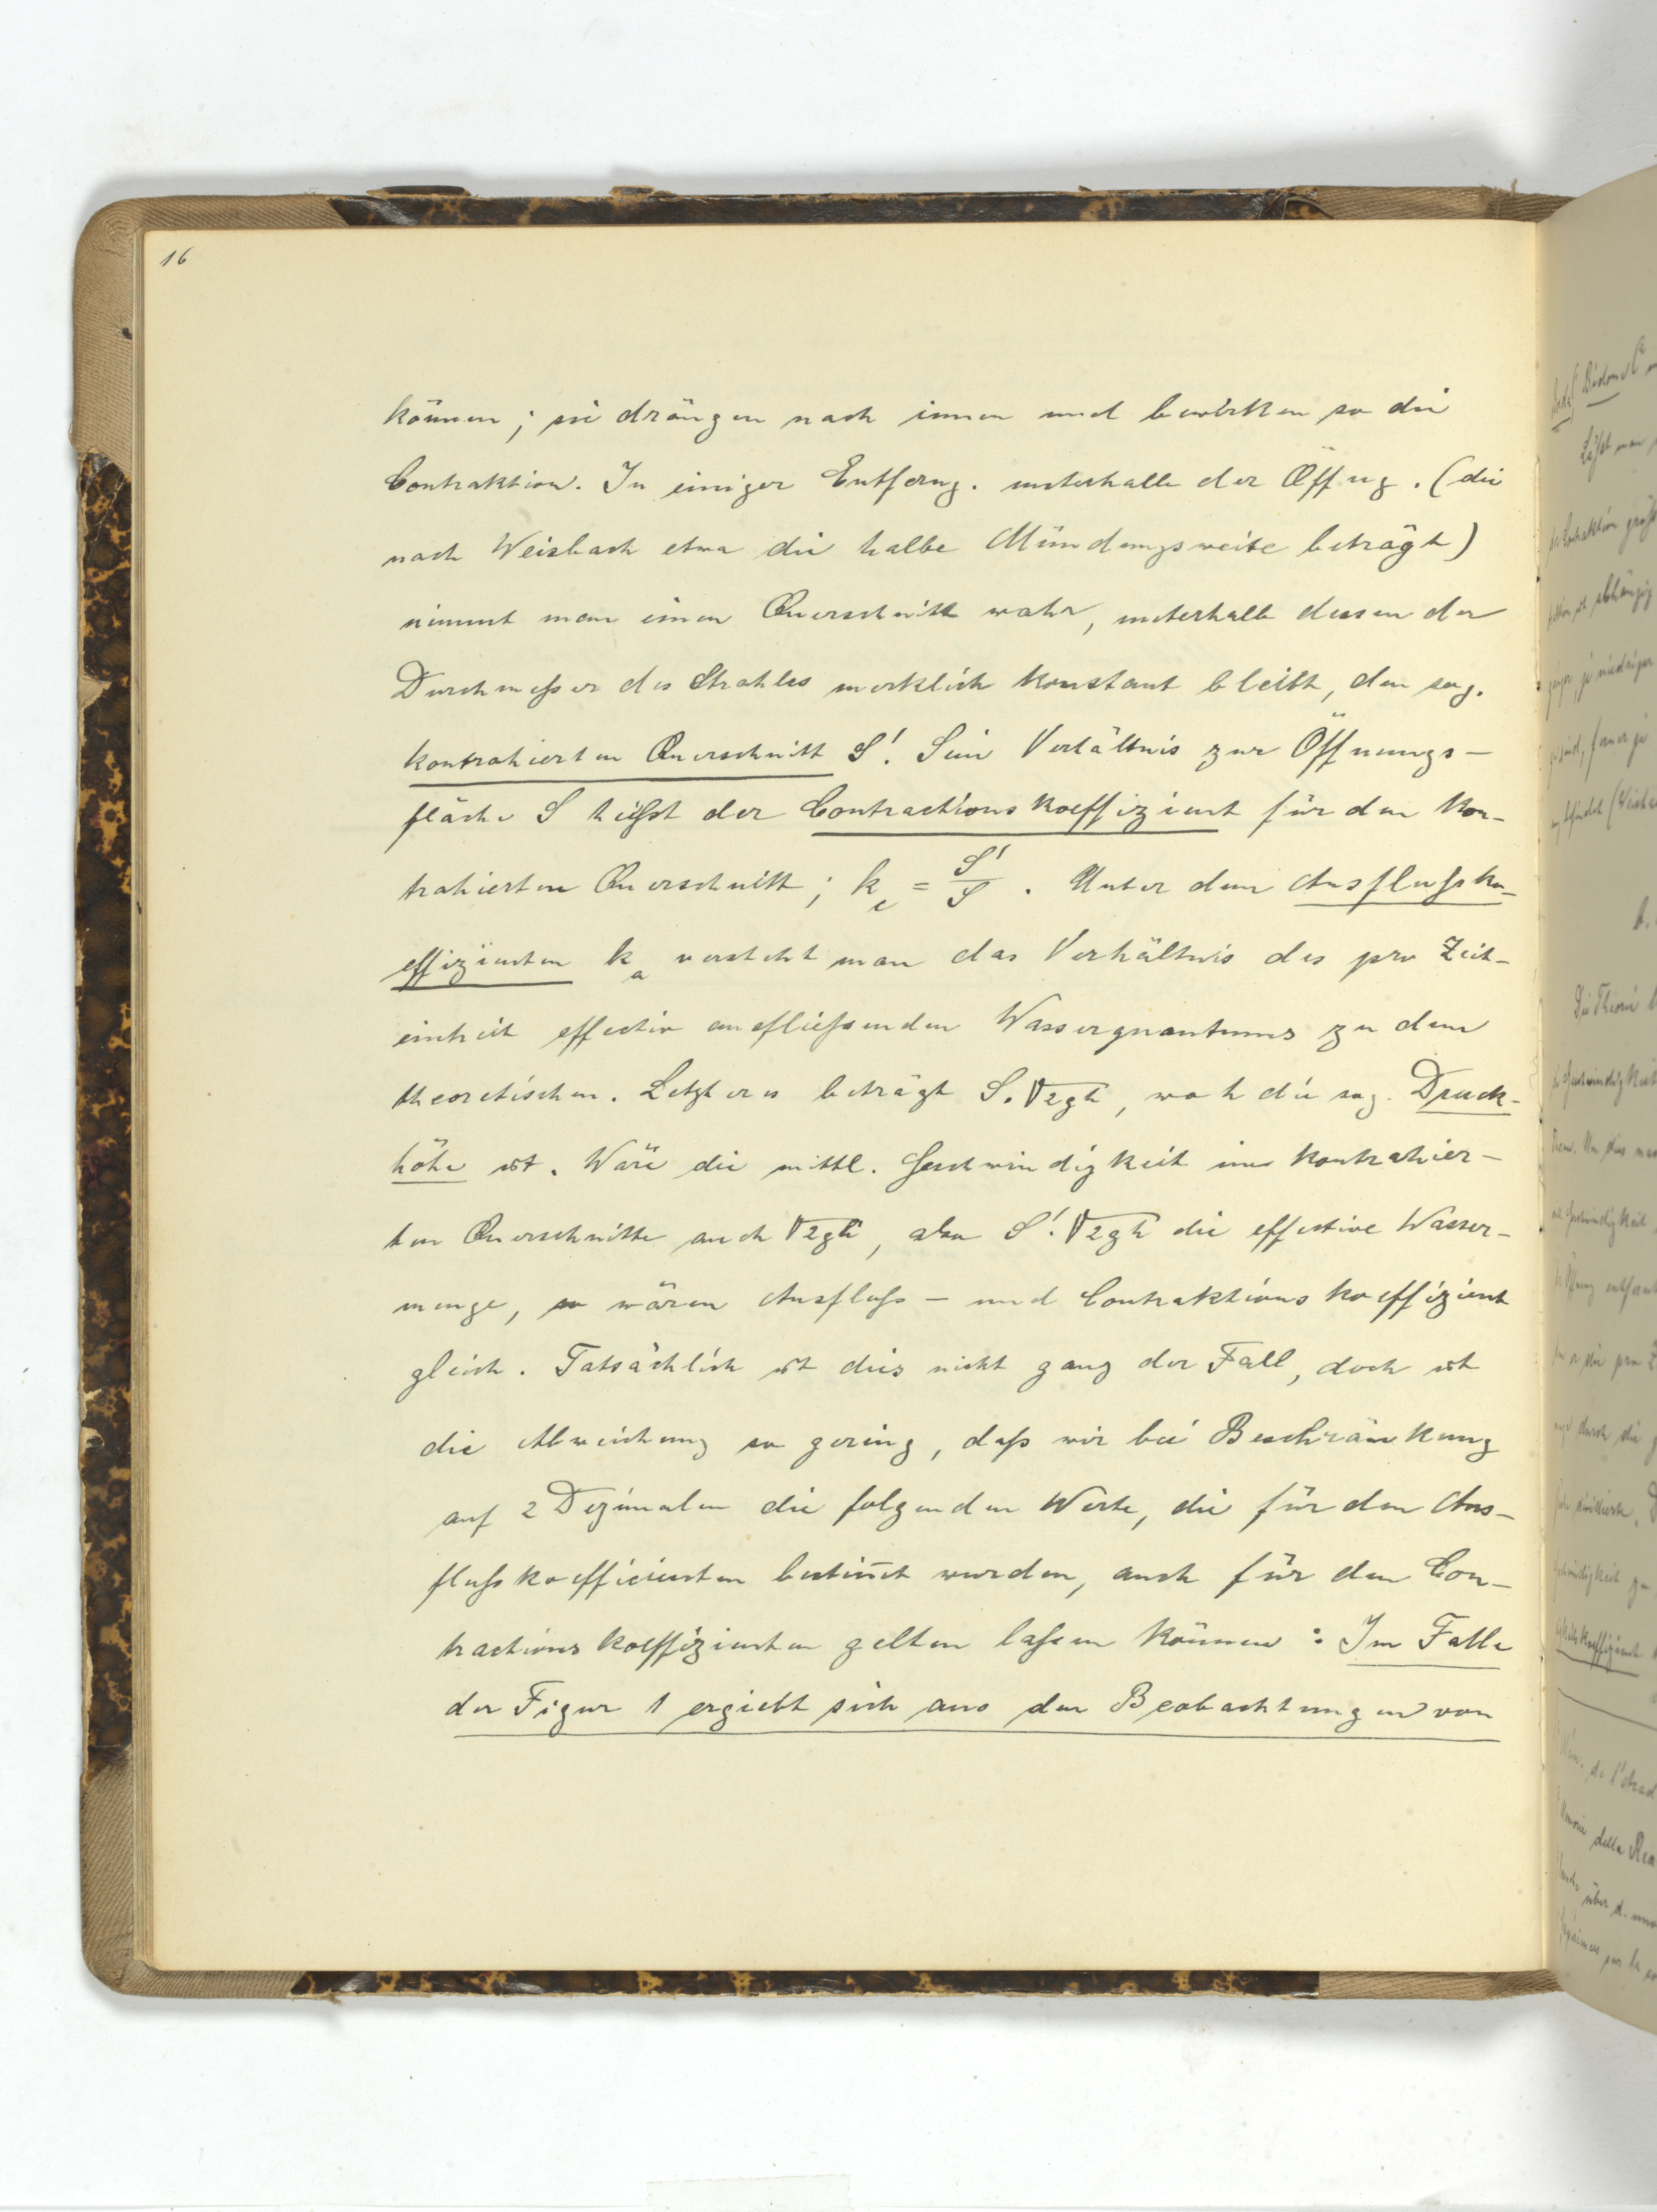 16
können; sie drängen nach innen und bewirken so die
Contraktion. In einiger Entferng. unterhalb der Öffng. (die
nach Weisbach etwa die halbe Mündungsweite beträgt)
nimmt man einen Querschnitt wahr, unterhalb dessen der
Durchmeßer des Strahles merklich konstant bleibt, den sog.
kontrahierten Querschnitt S'. Sein Verhältnis zur Öffnungs-
fläche S heißt der Contractionskoeffizient für den kon-
trahierten Querschnitt; k_c = S'/S. Unter dem Ausflußko-
effizienten k_a versteht man das Verhältnis des pro Zeit-
einheit effectiv ausfließenden Wasserquantums zu dem
theoretischen. Letzteres beträgt S.√2gh, wo h die sog. Druck-
höhe ist. Wäre die mittl. Geschwindigkeit im kontrahier-
ten Querschnitte auch √2gh, also S'.√2gh die effective Wasser-
menge, so wären Ausfluß- und Contraktionskoeffizient
gleich. Tatsächlich ist dies nicht ganz der Fall, doch ist
die Abweichung so gering, daß wir bei Beschränkung
auf 2 Dezimalen die folgenden Werte, die für den Aus-
flußkoefficienten bestim̅t wurden, auch für den Con-
tractionskoeffizienten gelten laßen können: Im Falle
der Figur 1 ergiebt sich aus den Beobachtungen von